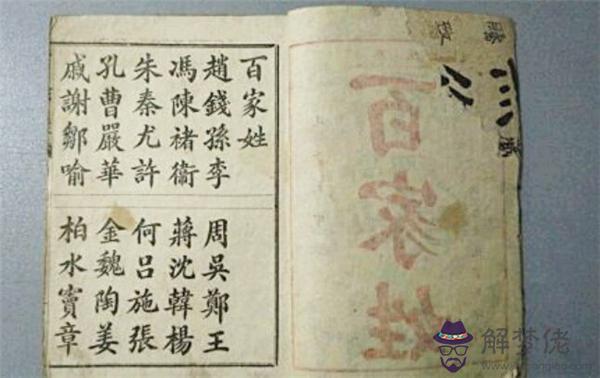 百家姓
百家姓
趙錢孫李
周吳鄭王
馮陳褚衛
蔣沈韓楊
朱秦尤許
何呂施張
孔曹嚴華
金魏陶姜
戚謝鄒喻
柏水竇章
解梦佬